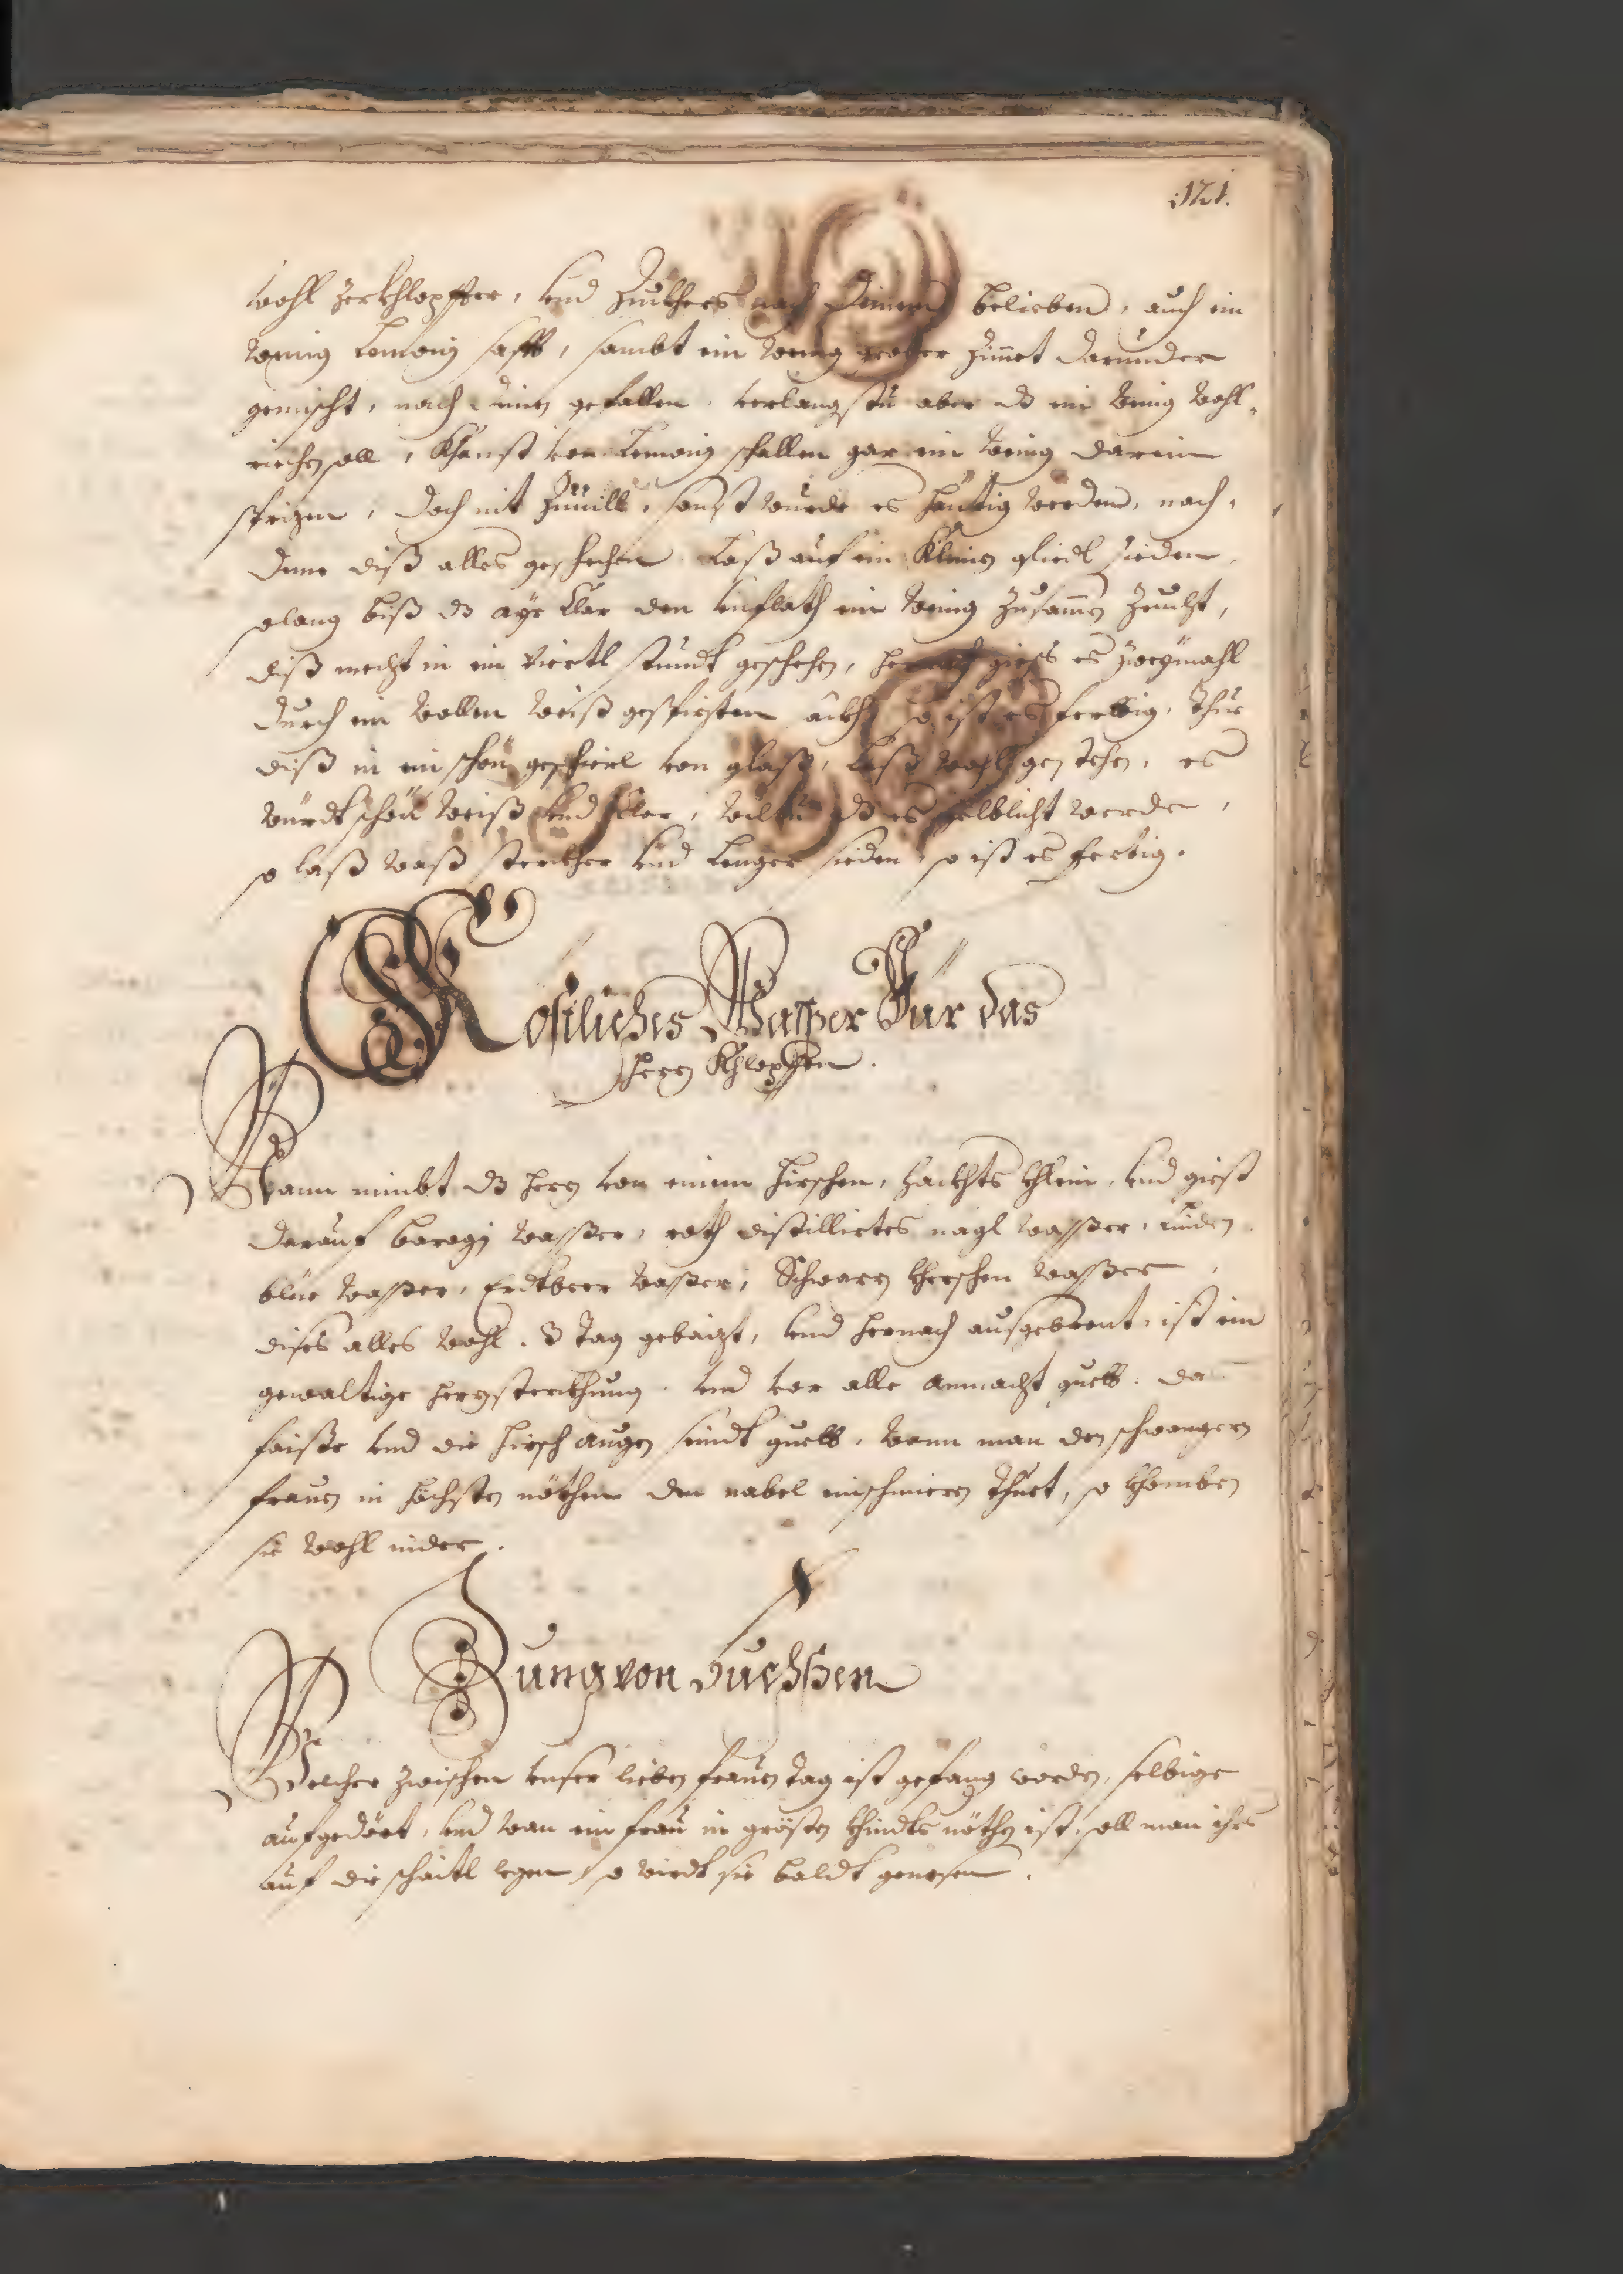 121.
wohl zerkhlopffter, vnd Zuckhers nach deinem belieben, auch ein
wenig Lemoni safft, sambt ein wenig grober Zimet darunder
gemischt, nach dein gefallen. verlangstu aber dz ein wenig wohl-
riechen soll, khanst von Lemoni schallen gar ein wenig darein
sprizen, doch nit Zuuill, sonst wurde es häntig werden, nach-
deme diß alles geschechen Laß auf ein Kleines gliedl sieden,
solang biß dz ayr klar den vnflath ein wenig Zusamen Zeucht,
diß mecht in ein viertl stundt geschehen, hernach giess es zweymahl
durch ein wollen weiß ist es fertig, thue
diß in ein schön geschierl von glaß, Laß wohl gestehen, es
würdt schön weiß vnd klar, wiltu dz es gelblicht werde,
so laß waß sterckher vnd Lenger sieden, so ist es fertig.
Kostliches Wasser Für das
Herz Khlopffen.
Mann nimbt dz herz von einem Hirschen, hackhts khlein, vnd giest
darauf boragi wasser, roth distilliertes nägl wasser, Linden
blüe wasser, Erdtbeer wasser, Schwarz kherschen wasser,
dises alles wohl. 3 tag gebaizt, vnd hernach ausgebrent, ist ein
gewaltige herzsterckhung. vnd vor alle Anmacht guett. da
faiste vnd die Hirsch augen seindt guett, wann man den schwangern
frauen in höchsten nöthen den nabel einschmieren thuet, so khomben
sie wohl nider.
Zung von Fuchsen
Welcher zwischen vnser lieben frauen tag ist gefang worden, selbige
aufgedört, vnd wan ein frau in grösten khindts nöthen ist, soll man ihrs
auf die schaitl legen so wirdt sie baldt genesen.